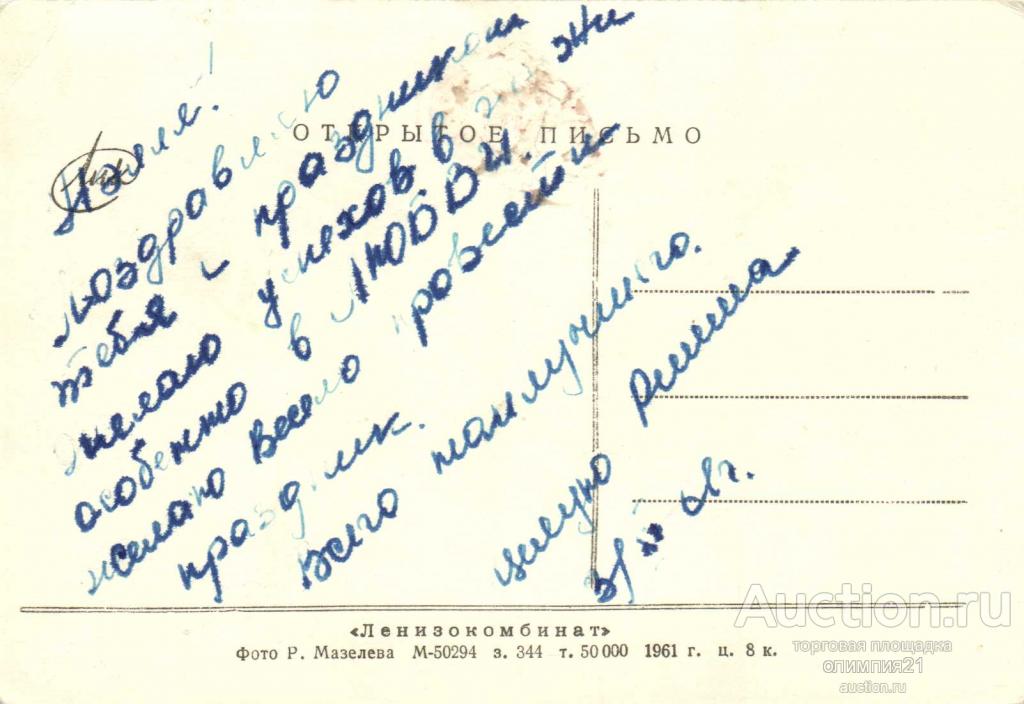 Нэлля!
Поздравляю
тебя с праздником
желаю успехов в жизни
особенно в ЛЮБВИ.
желаю весело провести
праздник.
Всего наилучшего.
целую Римма.
ОТКРЫТОЕ ПИСЬМО
«Ленизокомбинат»
Фото Р. Мазелева М-50294 з. 344 т. 50 000 1961 г. ц. 8 к.
Auction.ru
торговая площадка
олимпия21
auction.ru